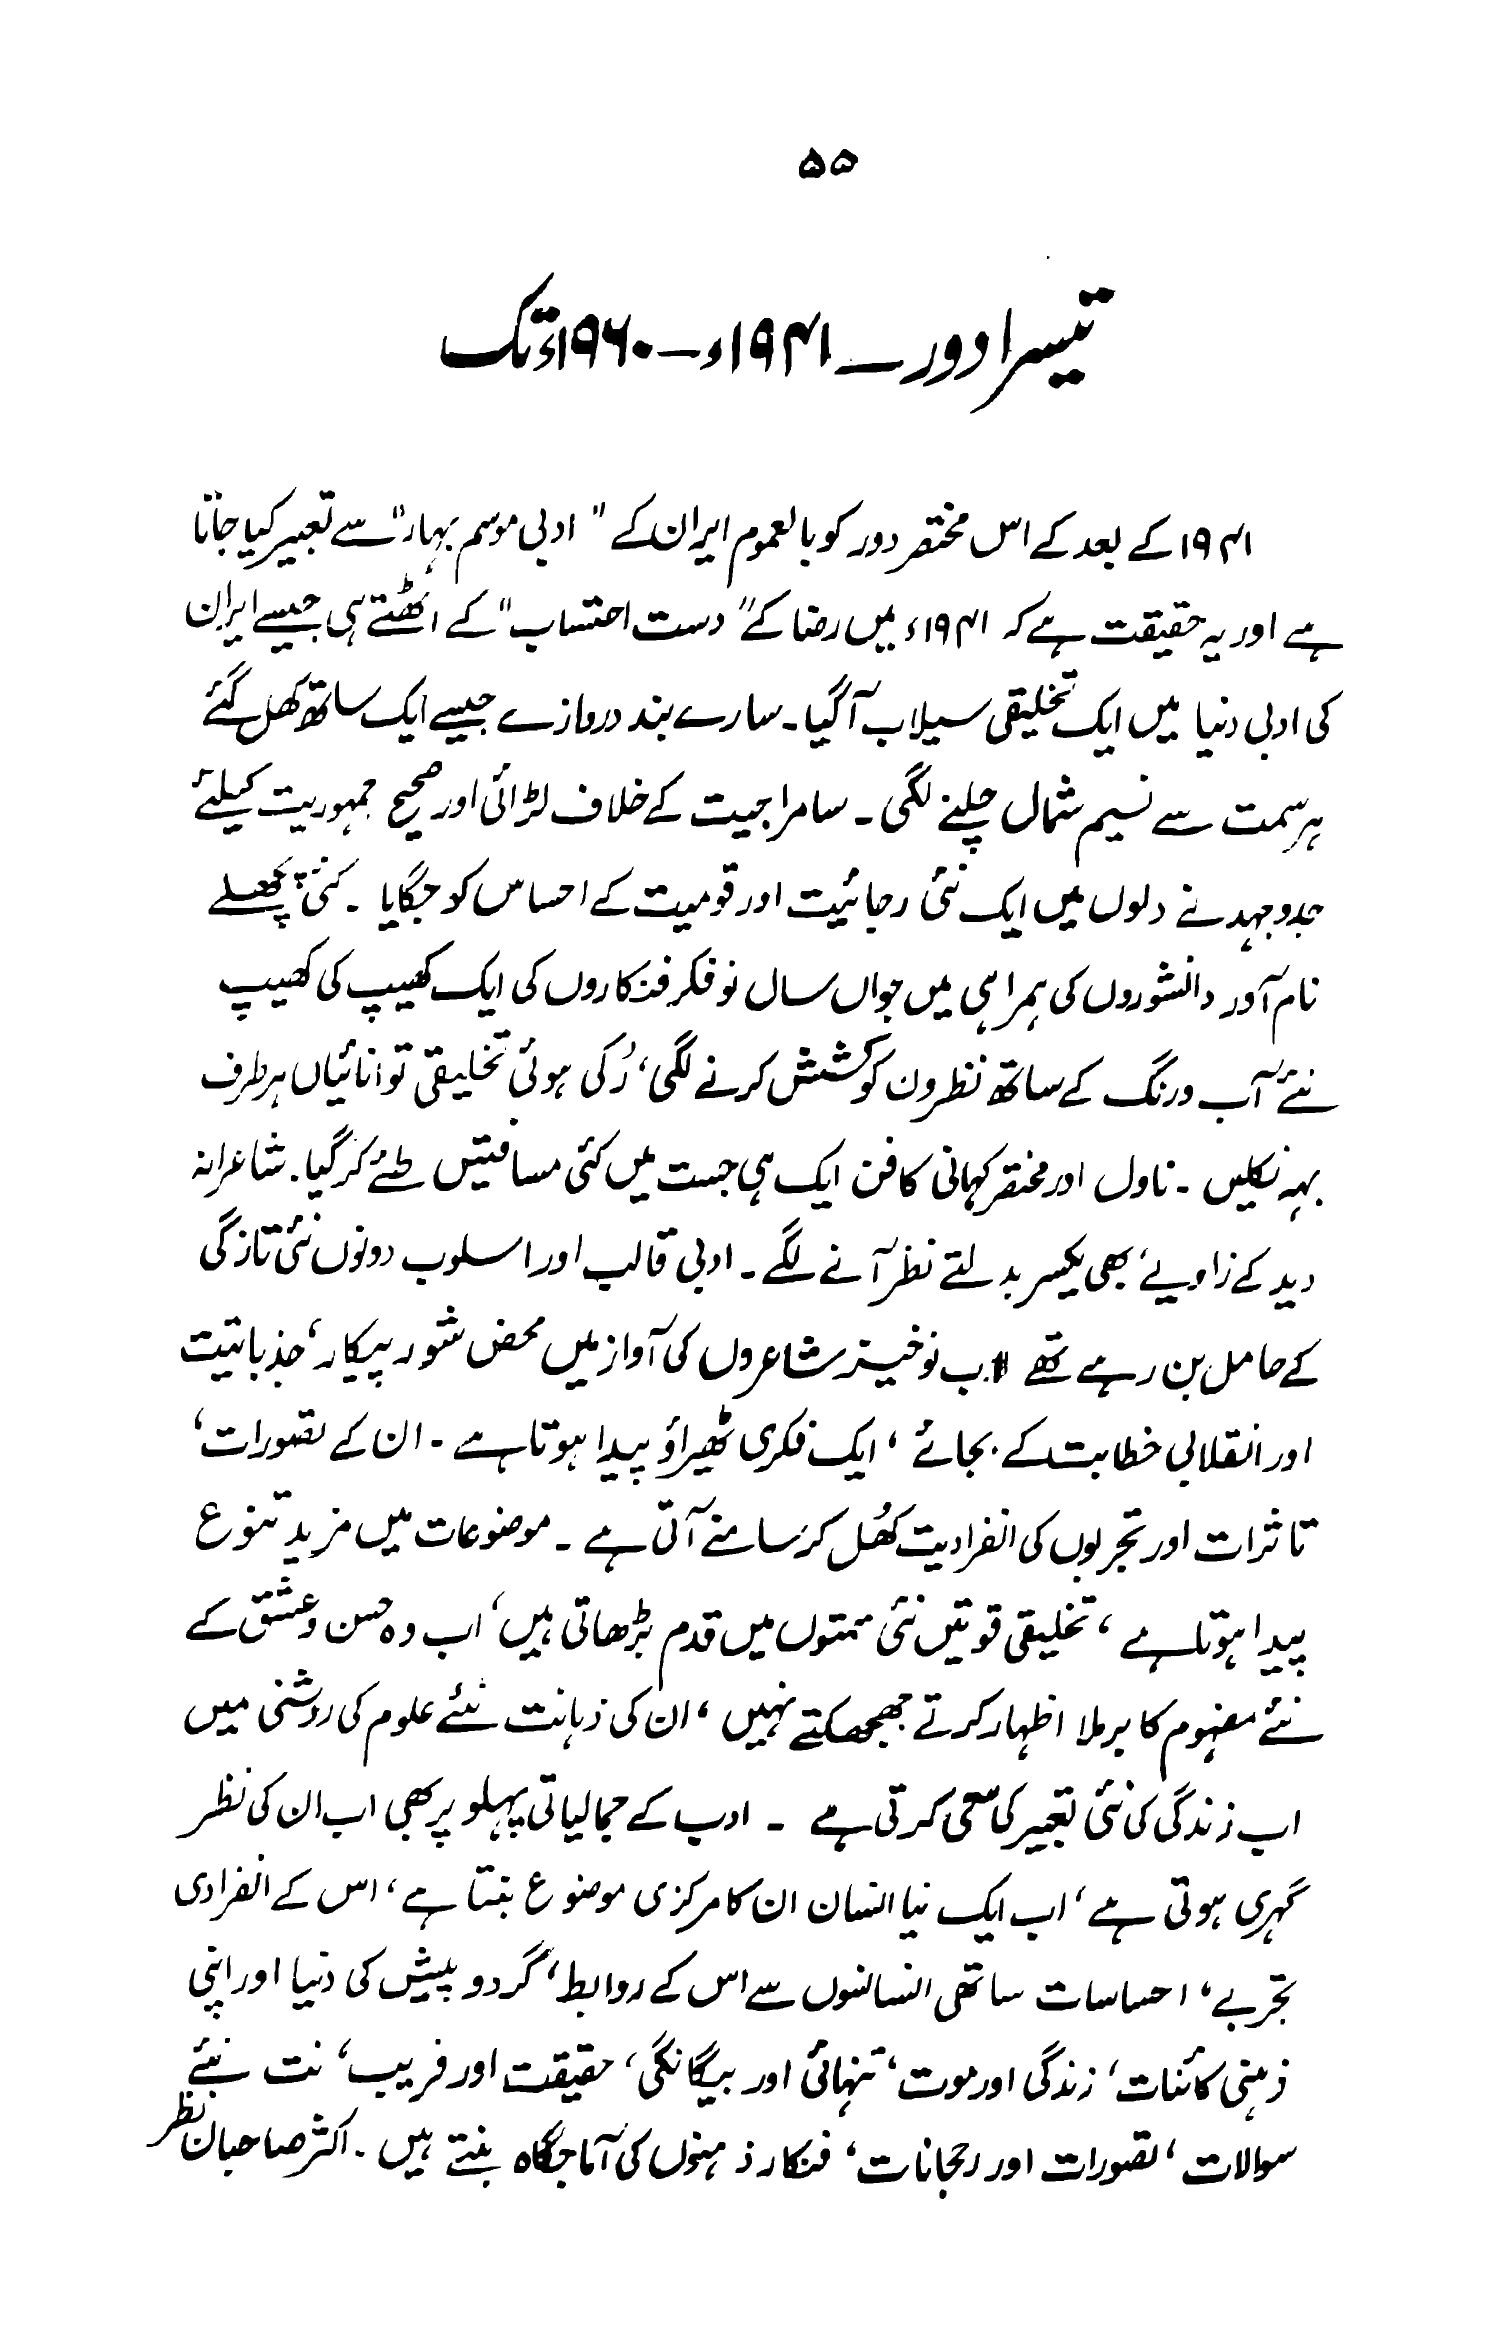 ۵۵
تیسرا دور ــ ۱۹۴۱ء – ۱۹۶۰ء تک
۱۹۴۱ کے بعد کے اس مختصر دور کو بالعموم ایران کے " ادبی موسم بہار" سے تعبیر کیا جاتا
ہے اور یہ حقیقت ہے کہ ۱۹۴۱ء میں رضا کے " دست احتساب" کے اٹھتے ہی جیسے ایران
کی ادبی دنیا میں ایک تخلیقی سیلاب آ گیا۔ سارے بند دروازے جیسے ایک ساتھ کھل گئے
ہر سمت سے نسیم شمال چلنے لگی ۔ سامراجیت کے خلاف لڑائی اور صحیح جمہوریت کیلئے
جدوجہد نے دلوں میں ایک نئی رجائیت اور قومیت کے احساس کو جگایا ۔ کئی پچھلے
نام آور دانشوروں کی ہمراہی میں جواں سال نو فکر فنکاروں کی ایک کھیپ کی کھیپ
نئے آب و رنگ کے ساتھ نظرون کو کشش کرنے لگی، رُکی ہوئی تخلیقی توانائیاں ہر طرف
بہہ نکلیں ۔ ناول اور مختصر کہانی کا فن ایک ہی جست میں کئی مسافتیں طئے کر گیا. شاعرانہ
دید کے زاویئے بھی یکسر بدلتے نظر آنے لگے ۔ ادبی قالب اور اسلوب دونوں نئی تازگی
کے حامل بن رہے تھے اب نوخیز شاعروں کی آواز میں محض شور پیکار، جذباتیت
اور انقلابی خطابت کے بجائے ، ایک فکری ٹھیراؤ پیدا ہوتا ہے ۔ ان کے تصورات،
تاثرات اور تجربوں کی انفرادیت کھُل کر سامنے آتی ہے ۔ موضوعات میں مزید تنوع
پیدا ہوتا ہے ، تخلیقی قوتیں نئی سمتوں میں قدم بڑھاتی ہیں، اب وہ حسن و عشق کے
نئے مفہوم کا برملا اظہار کرتے جھجھکتے نہیں ، ان کی ذہانت نئے علوم کی روشنی میں
اب زندگی کی نئی تعبیر کی سعی کرتی ہے ۔ ادب کے جمالیاتی پہلو پر بھی اب ان کی نظر
گہری ہوتی ہے ، اب ایک نیا انسان ان کا مرکزی موضوع بنتا ہے ، اس کے انفرادی
تجربے ، احساسات ساتھی انسانوں سے اس کے روابط، گرد و پیش کی دنیا اور اپنی
ذہنی کائنات، زندگی اور موت، تنہائی اور بیگانگی، حقیقت اور فریب، نت نئے
سوالات ، تصورات اور رجحانات، فنکار ذہنوں کی آماجگاہ بنتے ہیں ۔ اکثر صاحبان نظر